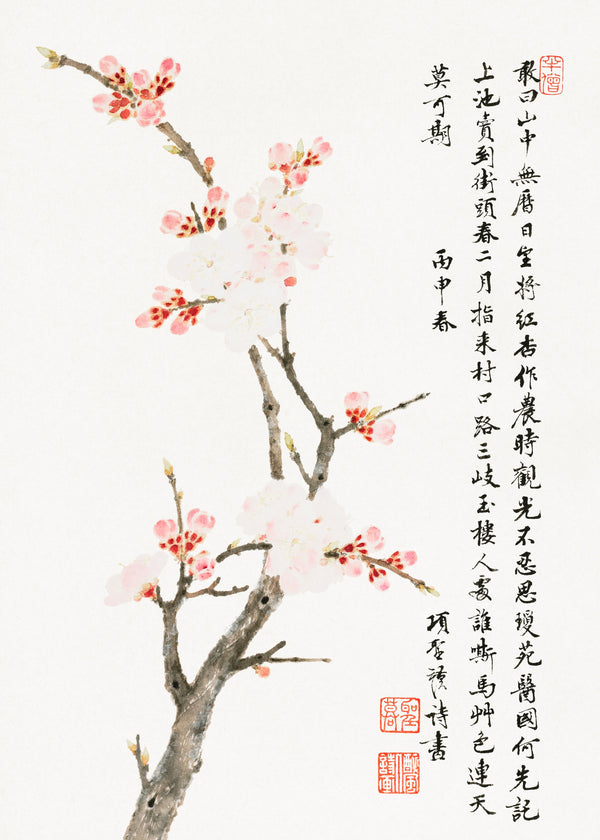 敢曰山中無曆日空將紅杏作農時觀光不忍思瓊苑醫國何先記
上池賣到街頭春二月指來村口路三岐玉樓人處誰嘶馬艸色連天
莫可期 丙申春 項聖謨詩書
半僧